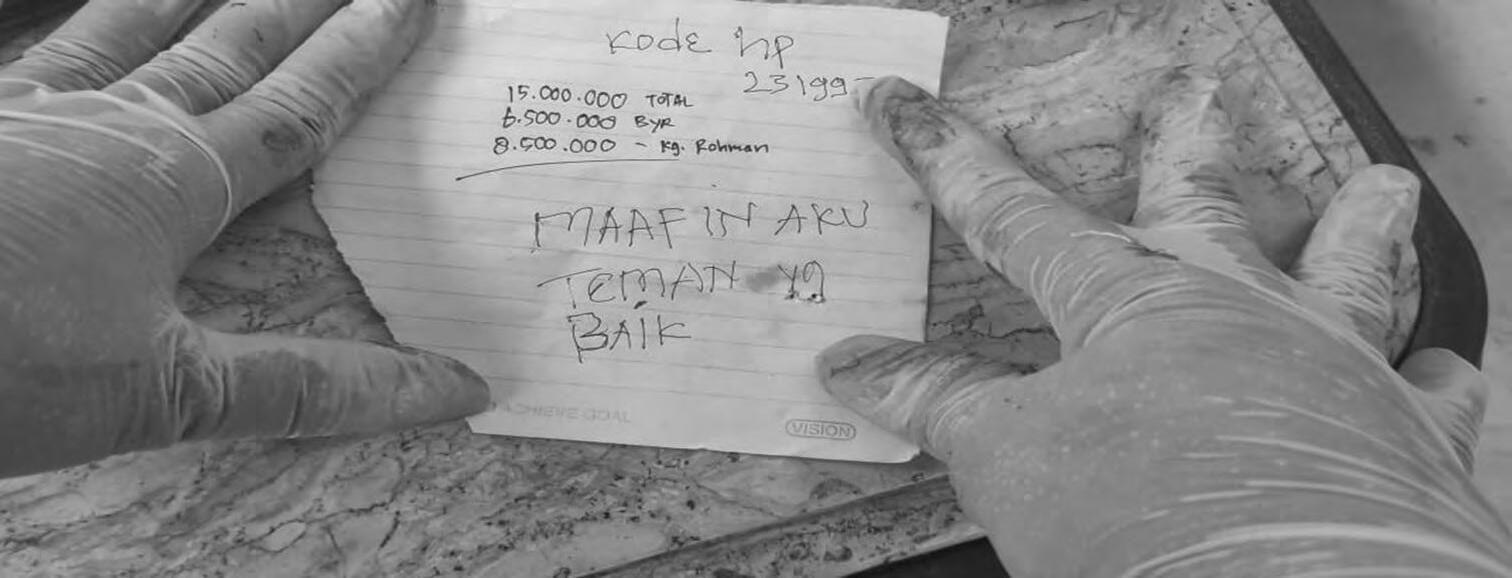 Kode hp
23199-
15.000.000 TOTAL
6.500.000 BYR
8.500.000 - Kg. Rohman
MAAFIN AKU
TEMAN yg
BAIK
ACHIEVE GOAL
VISION